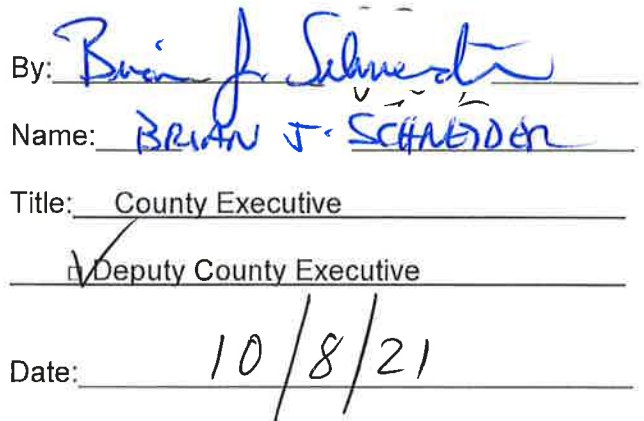 By: Brian J. Schneider
Name: BRIAN J. SCHNEIDER
Title: County Executive
☑ Deputy County Executive
Date: 10/8/21